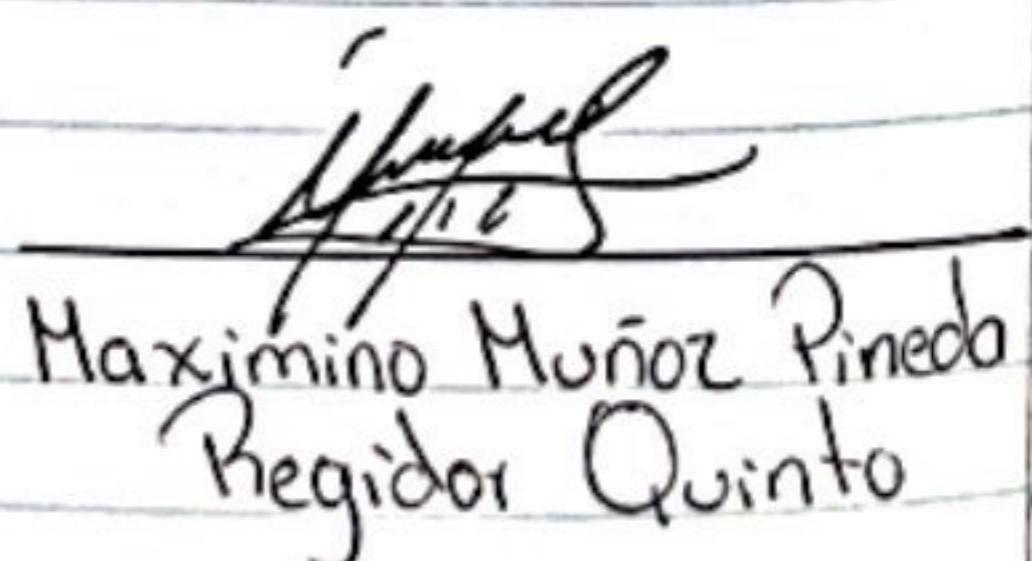 Maximino Muñoz Pineda
Regidor Quinto